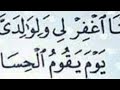 نَا ٱغْفِرْ لِي وَلِوَٰلِدَيَّ
يَوْمَ يَقُومُ ٱلْحِسَا